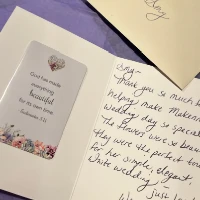 Gory
God has made
everything
beautiful
for its own time.
Ecclesiastes 3:11
Gory-
Thank you so much
helping make Makenn
wedding day so special
The flowers were so beau
they were the perfect tou
for her simple, elegant,
white wedding -
just lo
W